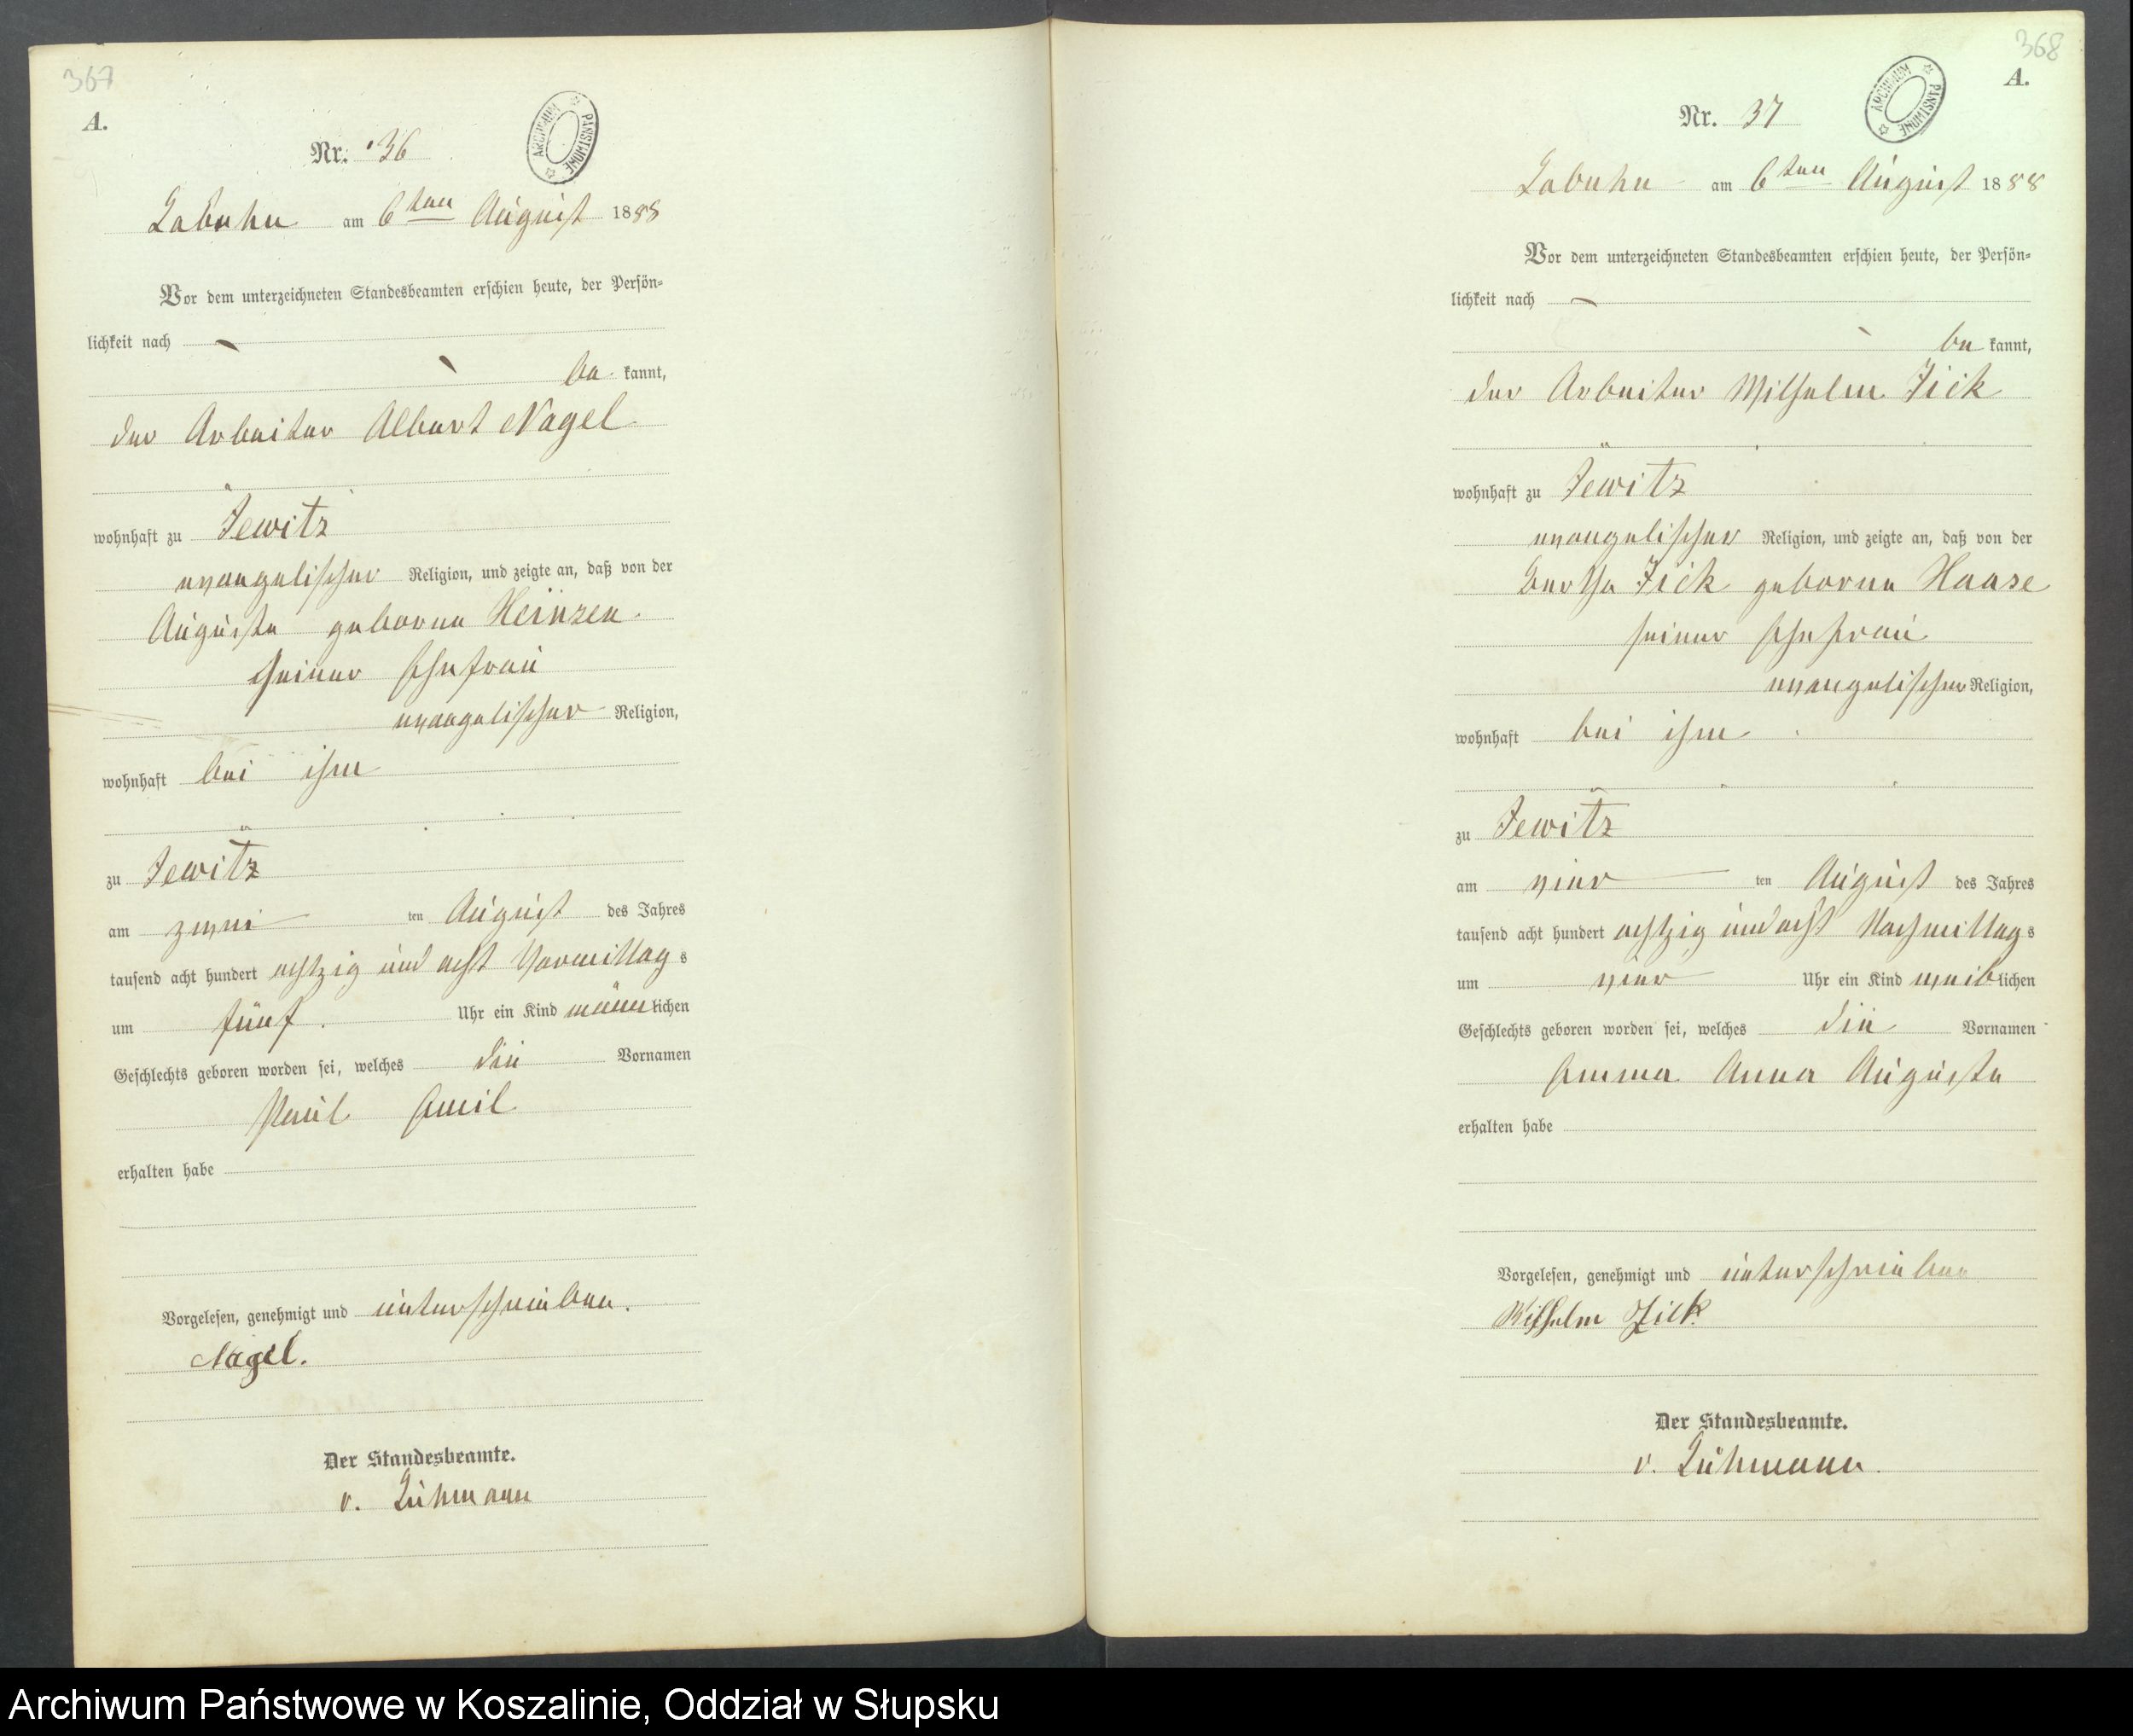 367
A.
ARCHIWUM PAŃSTWOWE
Nr. 36
Labuhn am 6ten August 1888
Vor dem unterzeichneten Standesbeamten erschien heute, der Persön-
lichkeit nach
be kannt,
der Arbeiter Albert Nagel
wohnhaft zu Jewitz
evangelischer Religion, und zeigte an, daß von der
Auguste geborne Heinzen
seiner Ehefrau
evangelischer Religion,
wohnhaft bei ihm
zu Jewitz
am zwei ten August des Jahres
tausend acht hundert achtzig und acht Vormittag s
um fünf Uhr ein Kind männlichen
Geschlechts geboren worden sei, welches die Vornamen
Paul Emil
erhalten habe
Vorgelesen, genehmigt und unterschrieben.
Nagel.
Der Standesbeamte.
v. Lühmann
368
A.
ARCHIWUM PAŃSTWOWE
Nr. 37
Labuhn am 6ten August 1888
Vor dem unterzeichneten Standesbeamten erschien heute, der Persön-
lichkeit nach
be kannt,
der Arbeiter Wilhelm Fick
wohnhaft zu Jewitz
evangelischer Religion, und zeigte an, daß von der
Bertha Fick geborne Haase
seiner Ehefrau
evangelischer Religion,
wohnhaft bei ihm
zu Jewitz
am vier ten August des Jahres
tausend acht hundert achtzig und acht Nachmittag s
um vier Uhr ein Kind weiblichen
Geschlechts geboren worden sei, welches die Vornamen
Emma Anna Auguste
erhalten habe
Vorgelesen, genehmigt und unterschrieben
Wilhelm Fick
Der Standesbeamte.
v. Lühmann.
Archiwum Państwowe w Koszalinie, Oddział w Słupsku